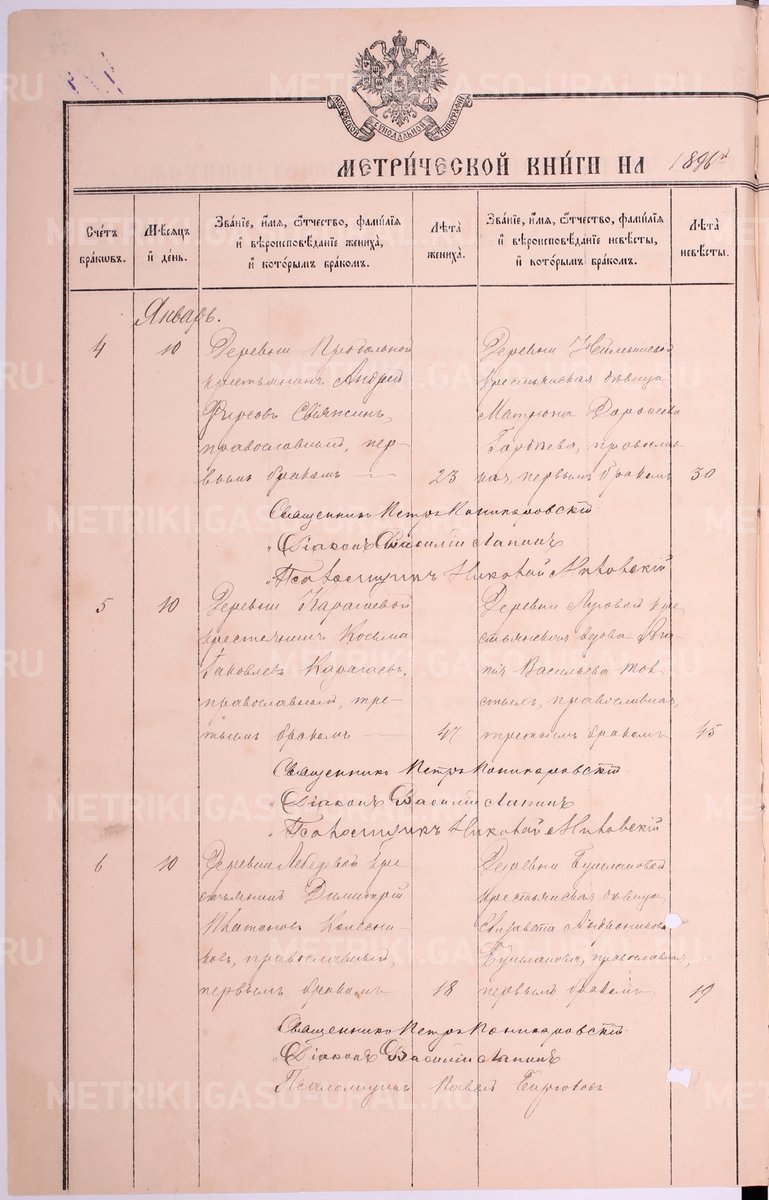 МОСКОВСКОЙ СѴНОДАЛЬНОЙ ТИПОГРАФІИ
МЕТРИ́ЧЕСКОЙ КНИ́ГИ НА 1896й
Сче́тъ бра́кѡвъ.
Мѣ́сѧцъ и҆ де́нь.
Зва́нїе, и҆́мѧ, ѻ҆́тчество, фами́лїѧ
и҆ вѣроисповѣ́данїе жениха̀,
и҆ кото́рымъ бра́комъ.
Лѣ́та жениха̀.
Зва́нїе, и҆́мѧ, ѻ҆́тчество, фами́лїѧ
и҆ вѣроисповѣ́данїе невѣ́сты,
и҆ кото́рымъ бра́комъ.
Лѣ́та невѣ́сты.
Январь.
4 10 Деревни
крестьянинъ Андрей
Фирсовъ
православный, пер-
вымъ бракомъ — 23
Деревни
крестьянская дѣвица
Матрона
православ-
ная, первымъ бракомъ 30
Священникъ Петръ Пономаровскій
„ Діаконъ Василій Лапинъ
„ Псаломщикъ Николай
5 10 Деревни Карагаевой
крестьянинъ Косьма
Яковлевъ Карагаевъ,
православный, тре-
тьимъ бракомъ — 47
Деревни Луговой кре-
стьянская вдова Ага-
пія Васильева Тол-
стыхъ, православная,
третьимъ бракомъ 45
Священникъ Петръ Пономаровскій.
„ Діаконъ Василій Лапинъ
„ Псаломщикъ Николай
6 10 Деревни Лебедевой кре-
стьянинъ Димитрій
Платоновъ Колесни-
ковъ, православный,
первымъ бракомъ 18
Деревни Бушлановой
крестьянская дѣвица
Елизавета Андроникова
Бушланова, православная,
первымъ бракомъ 19
Священникъ Петръ Пономаровскій.
„ Діаконъ Василій Лапинъ
Псаломщикъ Павелъ Бирюковъ
METRIKI.GASO-URAL.RU